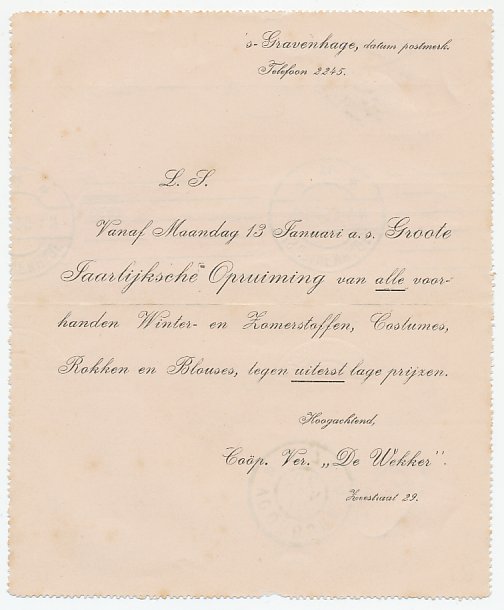 's-Gravenhage, datum postmerk.
Telefoon 2245.
L. S.
Vanaf Maandag 13 Januari a. s. Groote
Jaarlijksche Opruiming van alle voor-
handen Winter- en Zomerstoffen, Costumes,
Rokken en Blouses, tegen uiterst lage prijzen.
Hoogachtend,
Coöp. Ver. „De Wekker".
Zeestraat 29.